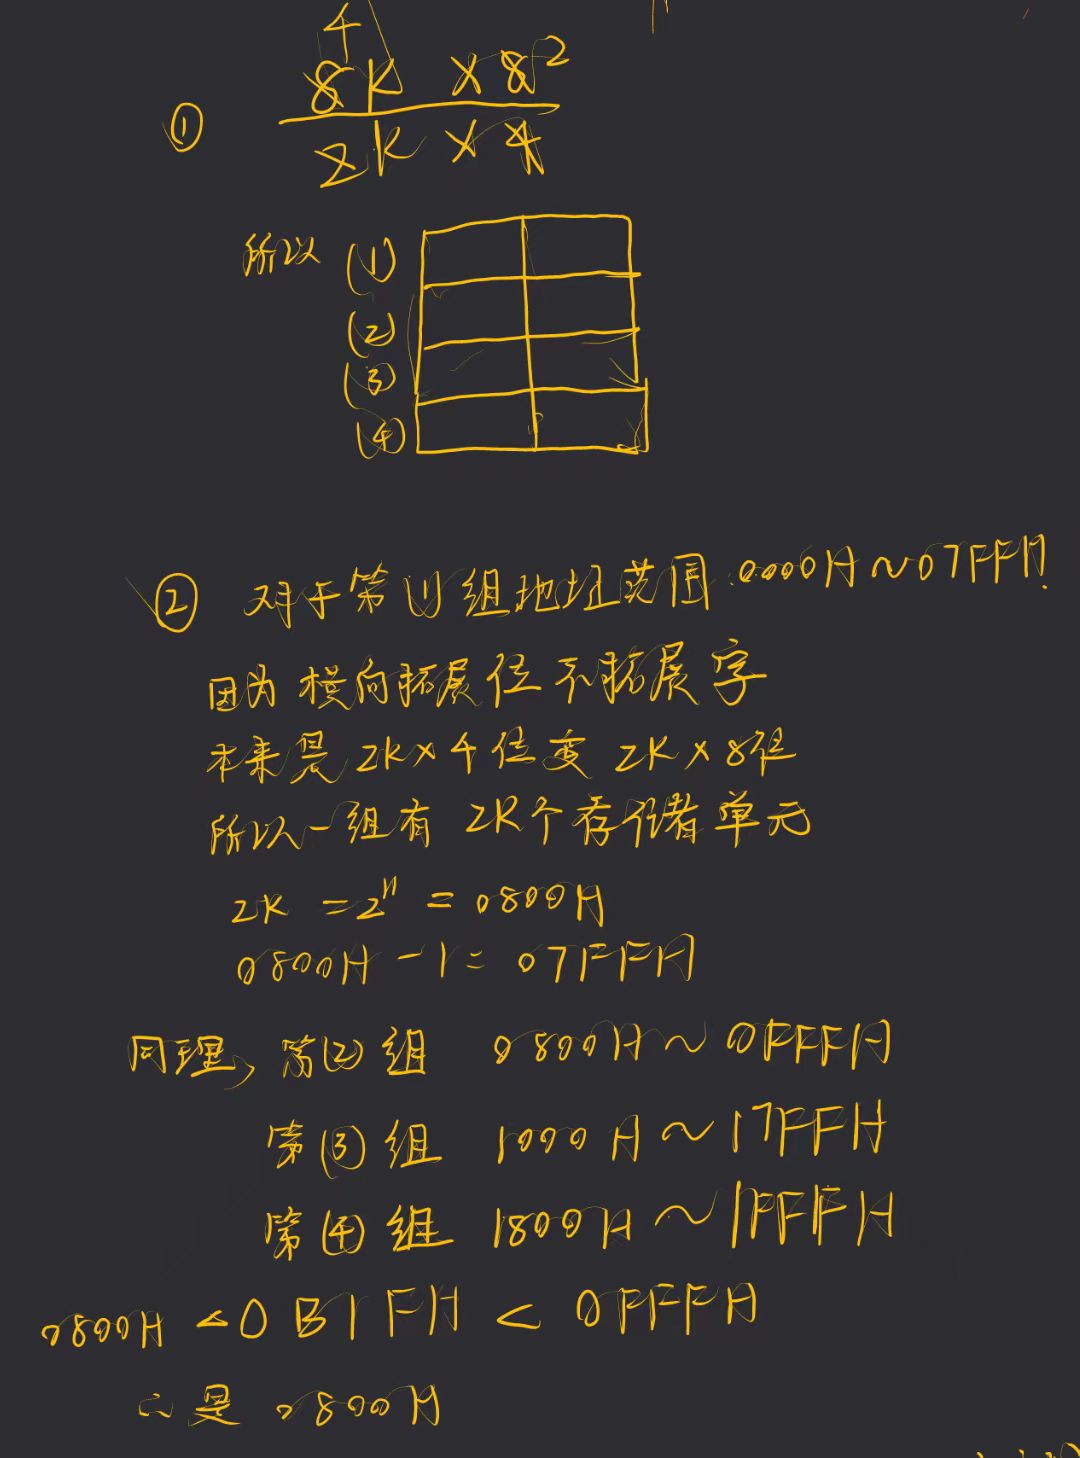 4
8K × 8 2
①
2K × 4
所以 (1)
(2)
(3)
(4)
② 对于第(1)组地址范围:0000H~07FFH
因为横向拓展位不拓展字
本来是2K×4位变2K×8位
所以一组有2K个存储单元
2K = 2^11 = 0800H
0800H - 1 = 07FFH
同理,第(2)组 0800H ~ 0FFFH
第(3)组 1000H ~ 17FFH
第(4)组 1800H ~ 1FFFH
0800H < 0B1FH < 0FFFH
∴是 0800H